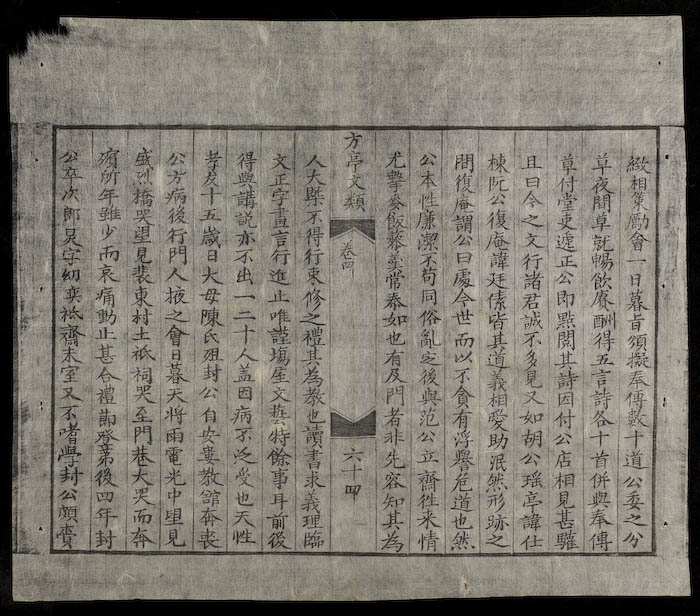 緻相策勵會一日暮旨頒擬奉傳數十道公委之分
草夜間草就暢飲賡酬得五言詩各十首併與奉傳
草付堂吏遞正公即點閱其詩因付公店相見甚驩
且曰今之文行諸君誠不多見又如胡公瑤亭諱仕
棟阮公復庵諱廷傃皆其道義相愛助泯然形跡之
間復庵謂公曰處今世而以不貪有浮譽危道也然
公本性廉潔不苟同俗亂之後與范公立齋徃來情
尤摯麥飯藜羹常泰如也有及門者非先容知其為
方亭文類
卷四
六十四
人大槩不得行束修之禮其為教也讀書求義理臨
文正字畫言行進止唯謹塲屋文藝特餘事耳前後
得與講説亦不出一二十人盖因病不泛受也天性
孝友十五歲日大母陳氏殂封公自安婁教舘奔喪
公方病後行門人掖之會日暮天將雨電光中望見
盛烈橋哭望見裴東村土祇祠哭至門巷大哭而奔
殯所年雖少而哀痛動止甚合禮節登第後四年封
公卒次郎晃字幼奕祇齋末室又不嗜學封公頗責